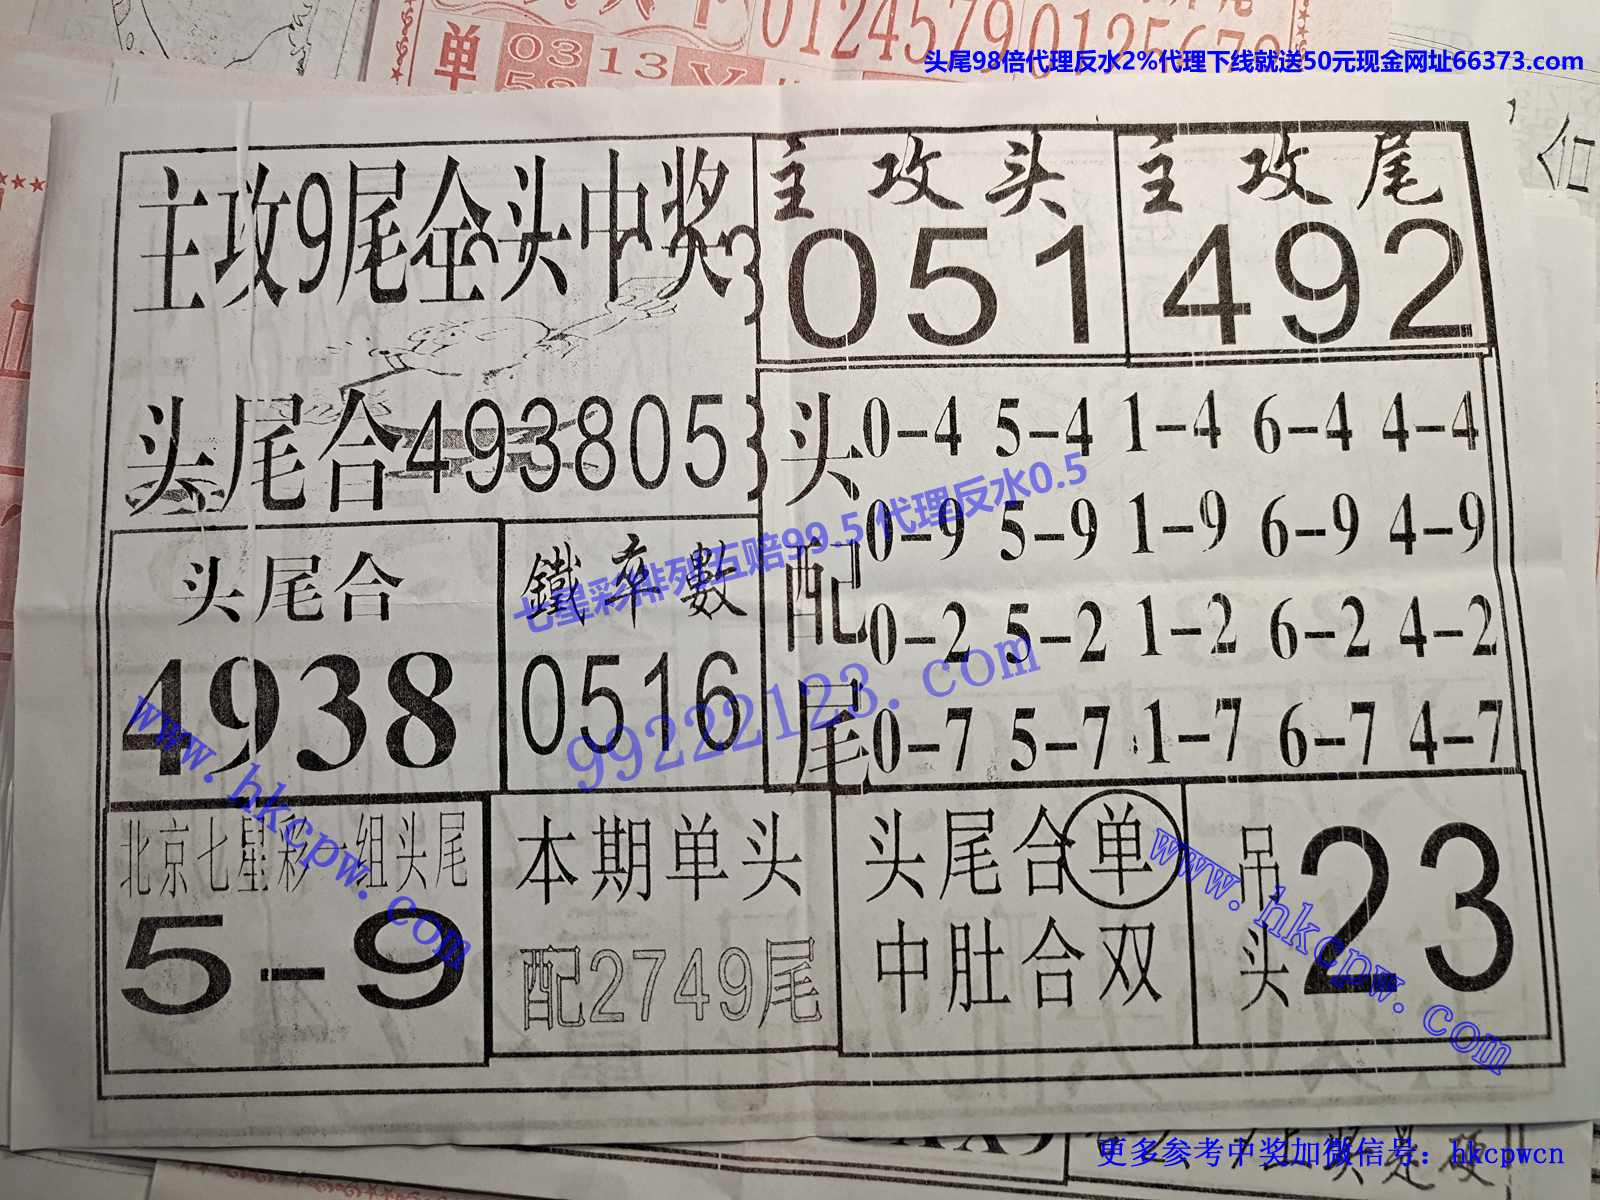 单 0313
01245790125670
头尾98倍代理反水2%代理下线就送50元现金网址66373.com
合
主攻9尾全头中奖
主攻头
051
主攻尾
492
头尾合493805
头尾合
4938
鐵率數
0516
头配尾
0-4 5-4 1-4 6-4 4-4
0-9 5-9 1-9 6-9 4-9
0-2 5-2 1-2 6-2 4-2
0-7 5-7 1-7 6-7 4-7
七星彩排列五赔99.5 代理反水0.5
99222123.com
www.hkcpw.com
www.hkcpw.com
北京七星彩一组头尾
5-9
本期单头
配2749尾
头尾合单
中肚合双
吊头23
更多参考中奖加微信号：hkcpwcn